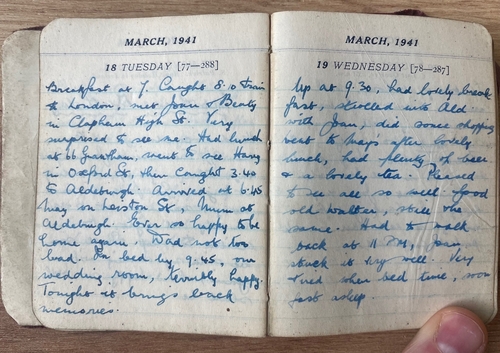 MARCH, 1941
18 TUESDAY [77—288]
Breakfast at 7. Caught 8.0 train
to London, met Joan & Betty
in Clapham High St. Very
surprised to see me. Had lunch
at 66 Grantham, went to see Harry
in Oxford St, then caught 3.40
to Aldeburgh. Arrived at 6.45
May on Leiston St, Mum at
Aldeburgh. Ever so happy to be
home again. Dad not too
bad. In bed by 9.45, our
wedding room, terribly happy.
Tonight it brings back
memories.
MARCH, 1941
19 WEDNESDAY [78—287]
Up at 9.30, had lovely break
fast, strolled into Ald.
with Joan, did some shopping
went to Mays after lovely
lunch, had plenty of beer
& a lovely tea. Pleased
to see all so well. Good
old Walter, still the
same. Had to walk
back at 11 PM, Joan
stuck it very well. Very
tired when bed time, soon
fast asleep.